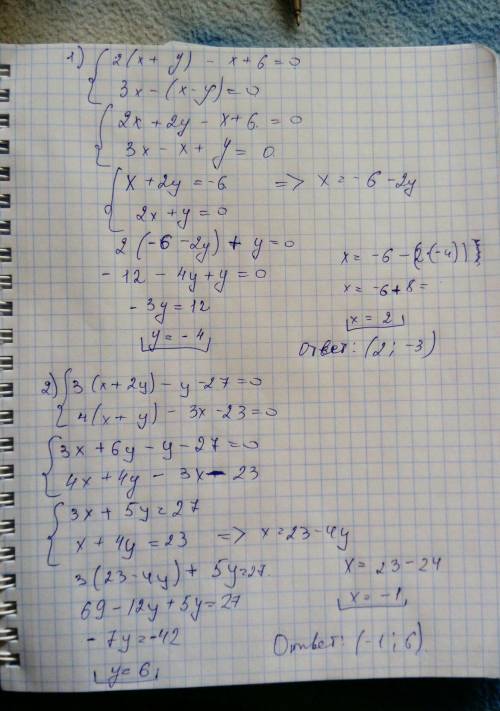 1) { 2(x+y) - x+6=0
3x-(x-y)=0
{ 2x+2y-x+6.=0
3x-x+y=0
{ x+2y=-6 => x=-6-2y
2x+y=0
2(-6-2y)+y=0
-12-4y+y=0
-3y=12
y=-4
x=-6-(2·(-4))
x=-6+8=
x=2
Ответ: (2; -3)
2) { 3(x+2y)-y-27=0
4(x+y)-3x-23=0
{ 3x+6y-y-27=0
4x+4y-3x-23
{ 3x+5y=27
x+4y=23 => x=23-4y
3(23-4y)+5y=27.
69-12y+5y=27
-7y=-42
y=6
x=23-24
x=-1
Ответ: (-1; 6)